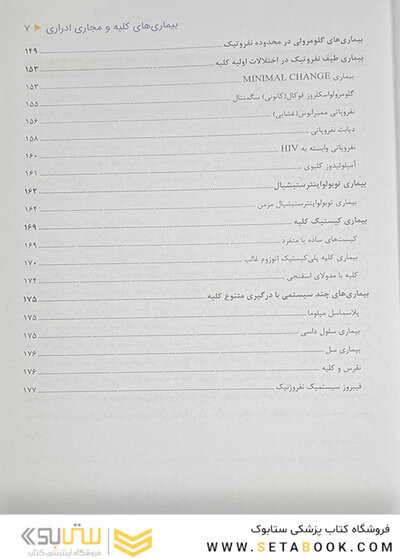 بیماری‌های کلیه و مجاری ادراری ◄ ۷
بیماری‌های گلومرولی در محدوده نفروتیک ۱۴۹
بیماری طیف نفروتیک در اختلالات اولیه کلیه ۱۵۳
بیماری MINIMAL CHANGE ۱۵۳
گلومرولواسکلروز فوکال(کانونی) سگمنتال ۱۵۵
نفروپاتی ممبرانوس(غشایی) ۱۵۶
دیابت نفروپاتی ۱۵۸
نفروپاتی وابسته به HIV ۱۶۰
آمیلوئیدوز کلیوی ۱۶۱
بیماری توبولواینترستیشیال ۱۶۲
بیماری توبولواینترستیشیال مزمن ۱۶۴
بیماری کیستیک کلیه ۱۶۹
کیست‌های ساده یا منفرد ۱۶۹
بیماری کلیه پلی‌کیستیک اتوزوم غالب ۱۷۰
کلیه با مدولای اسفنجی ۱۷۴
بیماری‌های چند سیستمی با درگیری متنوع کلیه ۱۷۵
پلاسماسل میلوما ۱۷۵
بیماری سلول داسی ۱۷۵
بیماری سل ۱۷۶
نقرس و کلیه ۱۷۶
فیبروز سیستمیک نفروژنیک ۱۷۷
فروشگاه کتاب پزشکی ستابوک
WWW.SETABOOK.COM
ستابوک
فروشگاه اینترنتی کتاب